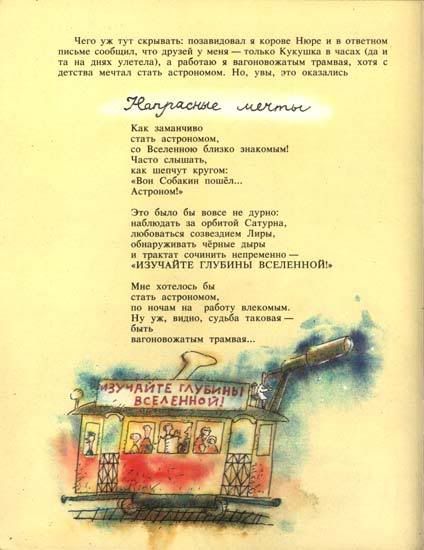 Чего уж тут скрывать: позавидовал я корове Нюре и в ответном
письме сообщил, что друзей у меня — только Кукушка в часах (да и
та на днях улетела), а работаю я вагоновожатым трамвая, хотя с
детства мечтал стать астрономом. Но, увы, это оказались
Напрасные мечты
Как заманчиво
стать астрономом,
со Вселенною близко знакомым!
Часто слышать,
как шепчут кругом:
«Вон Собакин пошёл...
Астроном!»
Это было бы вовсе не дурно:
наблюдать за орбитой Сатурна,
любоваться созвездием Лиры,
обнаруживать чёрные дыры
и трактат сочинить непременно —
«ИЗУЧАЙТЕ ГЛУБИНЫ ВСЕЛЕННОЙ!»
Мне хотелось бы
стать астрономом,
по ночам на работу влекомым.
Ну уж, видно, судьба таковая —
быть
вагоновожатым трамвая...
ИЗУЧАЙТЕ ГЛУБИНЫ
ВСЕЛЕННОЙ!